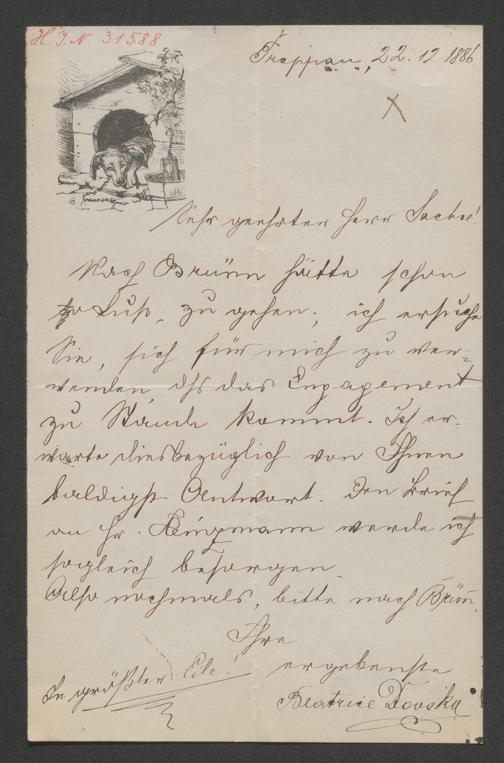 H. I. N. 31588
Troppau, 22. 12. 1886
Sehr geehrter Herr Sachse!
Nach Brünn hätte schon
Lust, zu gehen; ich ersuche
Sie, sich für mich zu ver-
wenden, dß das Engagement
zu Stande kommt. Ich er-
warte diesbezüglich von Ihnen
baldigst Antwort. Den Brief
an Hr. werde ich
sogleich besorgen
Also nochmals, bitte nach Brünn.
Ihre
ergebenste
In größter Eile!
Beatrice Dovsky